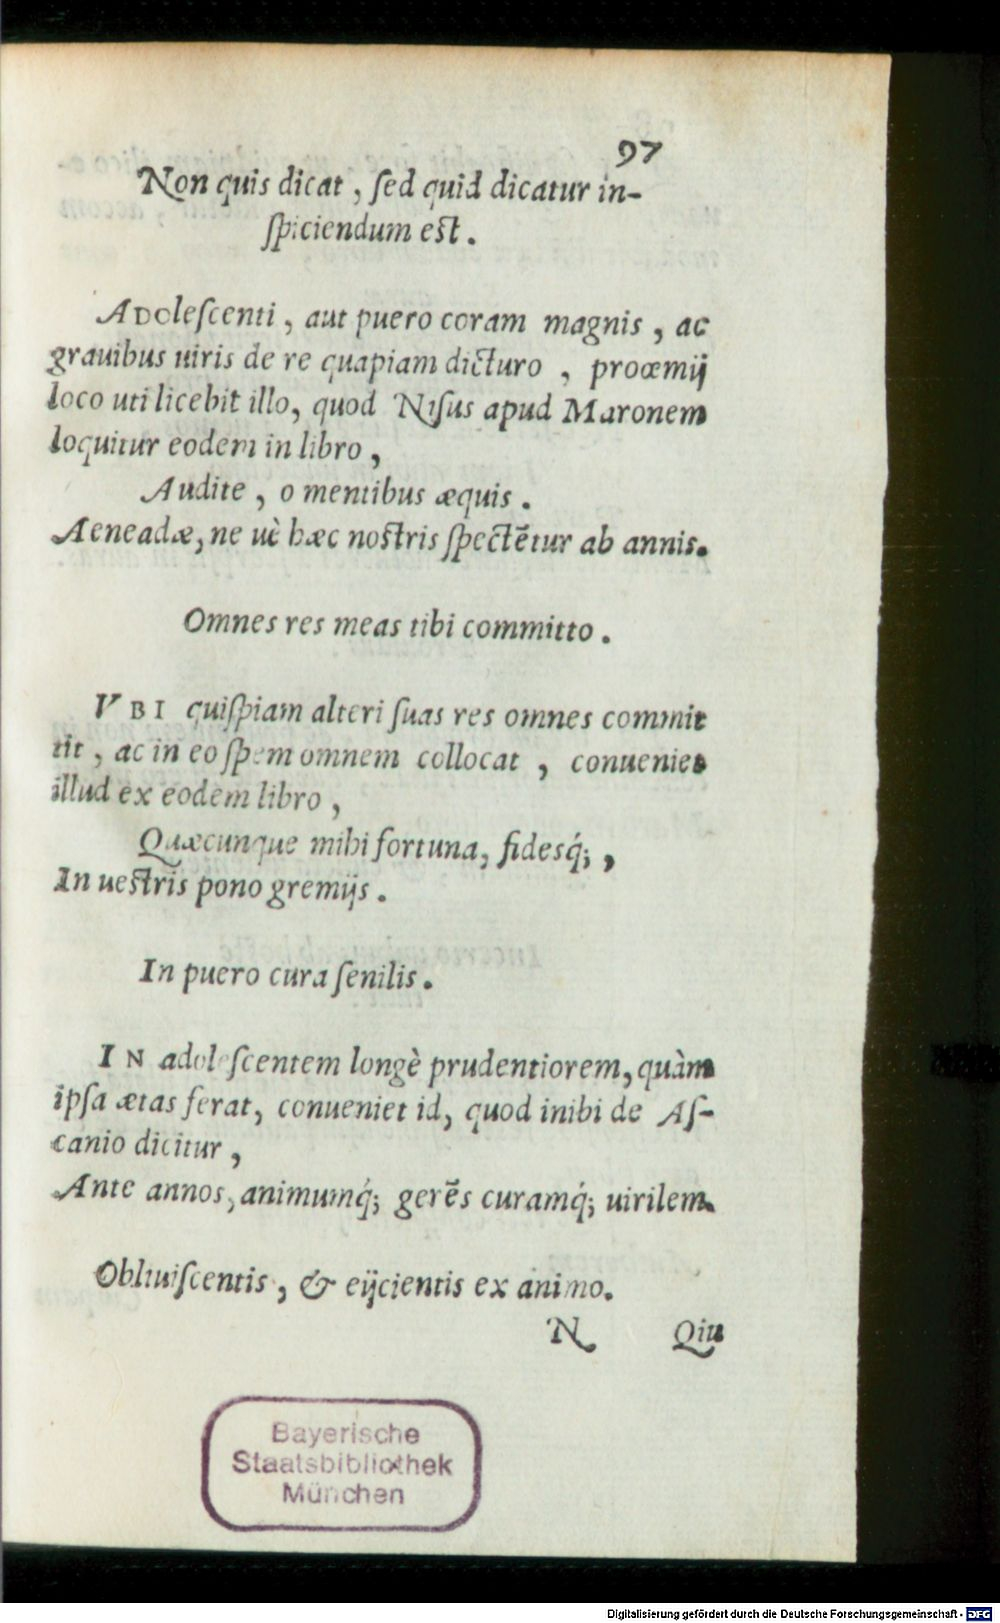 97
Non quis dicat, ſed quid dicatur in-
ſpiciendum est.
Adoleſcenti, aut puero coram magnis, ac
grauibus uiris de re quapiam dicturo, proœmij
loco uti licebit illo, quod Niſus apud Maronem
loquitur eodem in libro,
Audite, o mentibus æquis.
Aeneadæ, ne uè hæc nostris ſpectētur ab annis.
Omnes res meas tibi committo.
VBI quiſpiam alteri ſuas res omnes commit
tit, ac in eo ſpem omnem collocat, conueniet
illud ex eodem libro,
Quæcunque mihi fortuna, fidesq́;,
In uestris pono gremijs.
In puero cura ſenilis.
IN adoleſcentem longè prudentiorem, quàm
ipſa ætas ferat, conueniet id, quod inibi de Aſ-
canio dicitur,
Ante annos, animumq́; gerēs curamq́; uirilem.
Obliuiſcentis, & eijcientis ex animo.
N Qiu
Bayerische
Staatsbibliothek
München
Digitalisierung gefördert durch die Deutsche Forschungsgemeinschaft - DFG